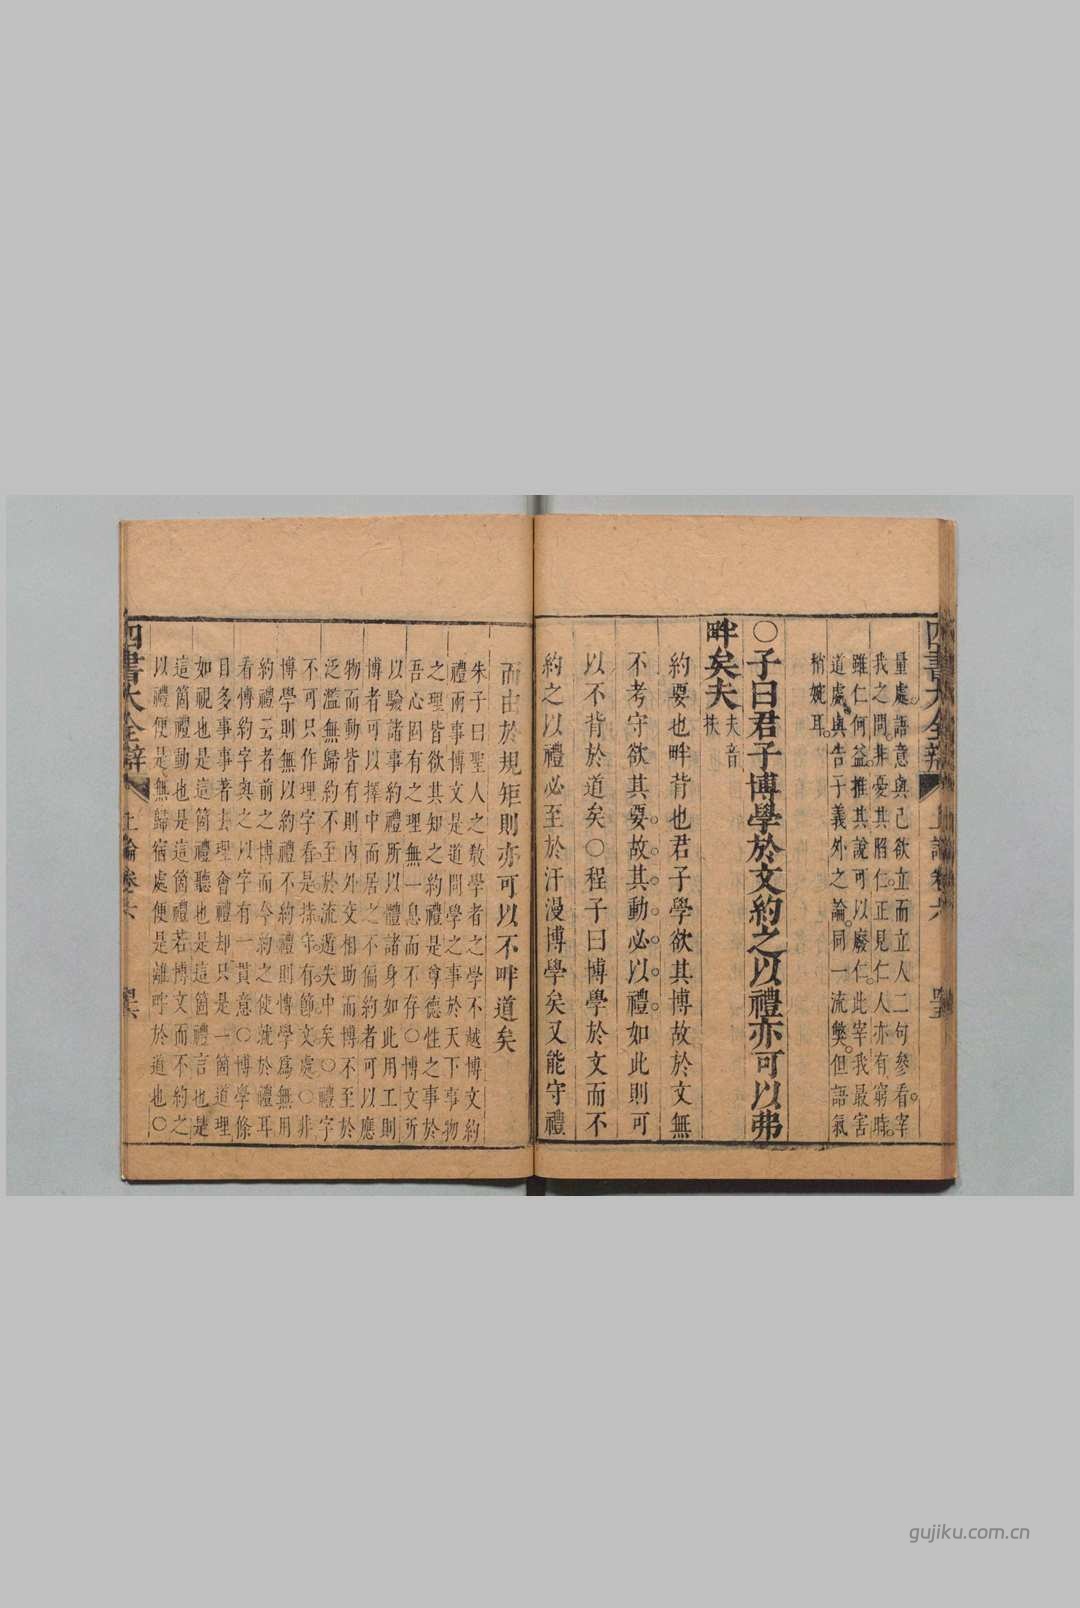 四書大全辯 上論卷六 四五
量處語意與己欲立而立人二句參看宰
我之問非憂其陷仁正見仁人亦有窮時
雖仁何益推其說可以廢仁此宰我最害
道處與告子義外之論同一流弊但語氣
稍婉耳
○子曰君子博學於文約之以禮亦可以弗
畔矣夫夫音扶
約要也畔背也君子學欲其博故於文無
不考守欲其要故其動必以禮如此則可
以不背於道矣○程子曰博學於文而不
約之以禮必至於汗漫博學矣又能守禮
而由於規矩則亦可以不畔道矣
朱子曰聖人之敎學者之學不越博文約
禮兩事博文是道問學之事於天下事物
之理皆欲其知之約禮是尊德性之事於
吾心固有之理無一息而不存○博文所
以驗諸事約禮所以體諸身如此用工則
博者可以擇中而居之不偏約者可以應
物而動皆有則內外交相助而博不至於
泛濫無歸約不至於流遁失中矣○禮字
不可只作理字看是持守有節文處○非
博學則無以約禮不約禮則博學爲無用
約禮云者前之博而今約之使就於禮耳
看博約字與之以字有一貫意○博學條
目多事事著去理會禮却只是一箇道理
如視也是這箇禮聽也是這箇禮言也是
這箇禮動也是這箇禮若博文而不約之
以禮便是無歸宿處便是離畔於道也○
四書大全辯 上論卷六 四六
gujiku.com.cn